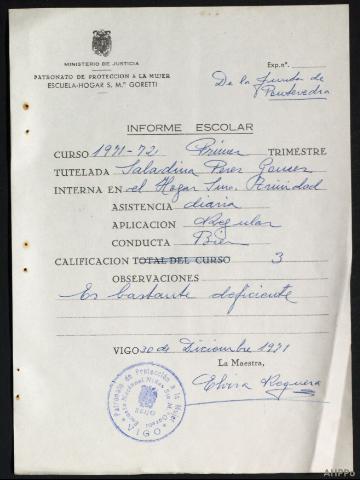 MINISTERIO DE JUSTICIA
PATRONATO DE PROTECCIÓN A LA MUJER
ESCUELA-HOGAR S. M.ª GORETTI
Exp.nº.
De la Junta de
Pontevedra
INFORME ESCOLAR
CURSO 1971-72, Primer TRIMESTRE
TUTELADA Saladina Peres
INTERNA EN el Hogar Sma. Trinidad
ASISTENCIA diaria
APLICACION Regular
CONDUCTA Bien
CALIFICACION TOTAL DEL CURSO 3
OBSERVACIONES
Es bastante deficiente
VIGO 30 de Diciembre 1971
La Maestra,
Elvira Roguera
Patronato de Protección a la Mujer
VIGO
AHPPo